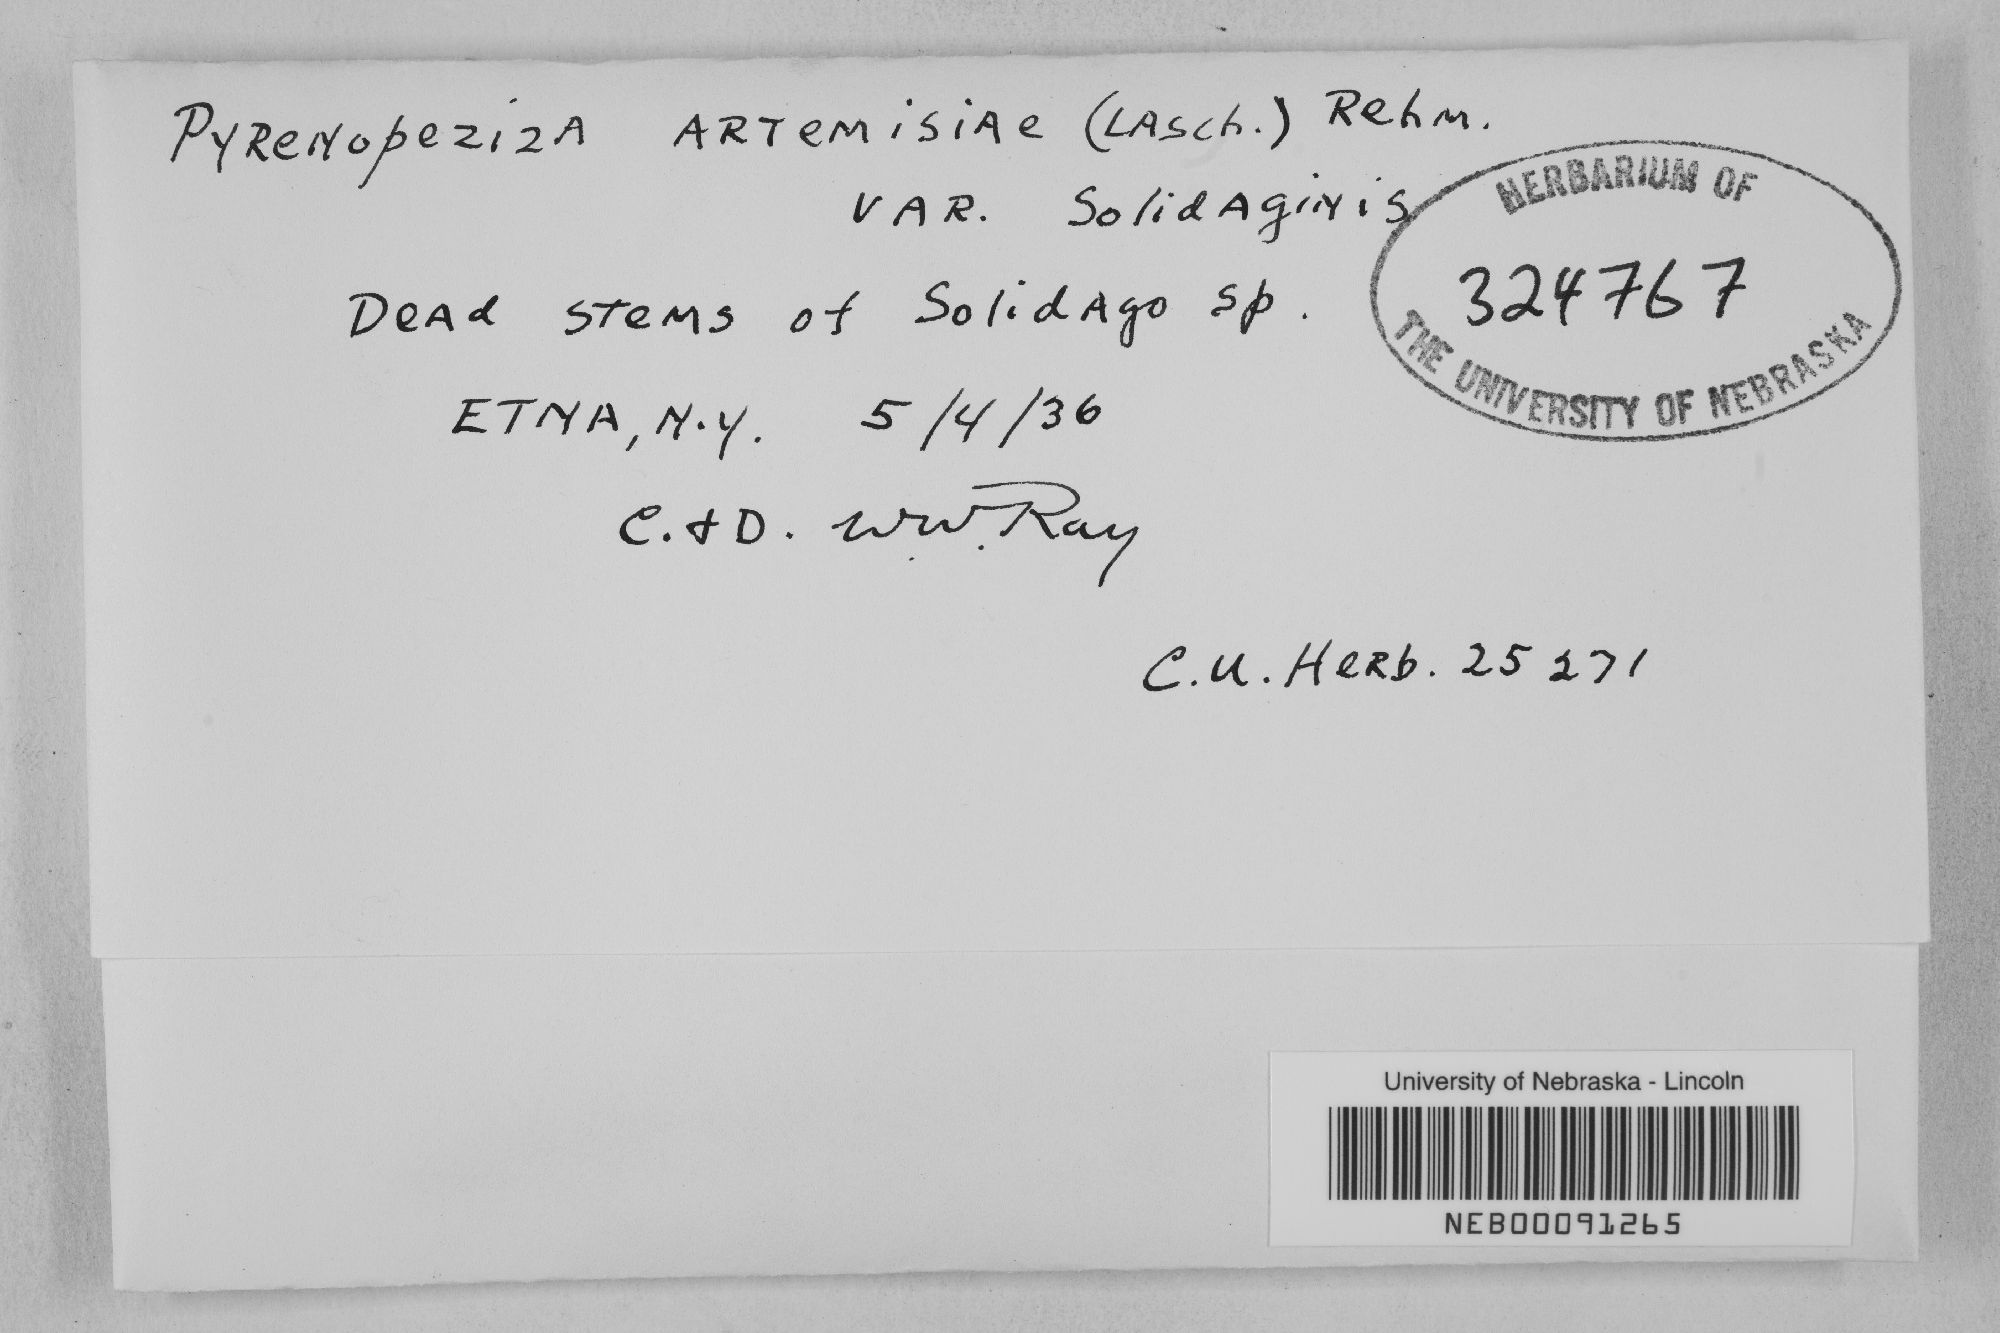 Pyrenopeziza Artemisiae (Lasch.) Rehm.
var. Solidaginis
Dead stems of Solidago sp.
Etna, N.Y. 5/4/36
C. & D. W.W. Ray
HERBARIUM OF
324767
THE UNIVERSITY OF NEBRASKA
C.U. Herb. 25271
University of Nebraska - Lincoln
NEB00091265